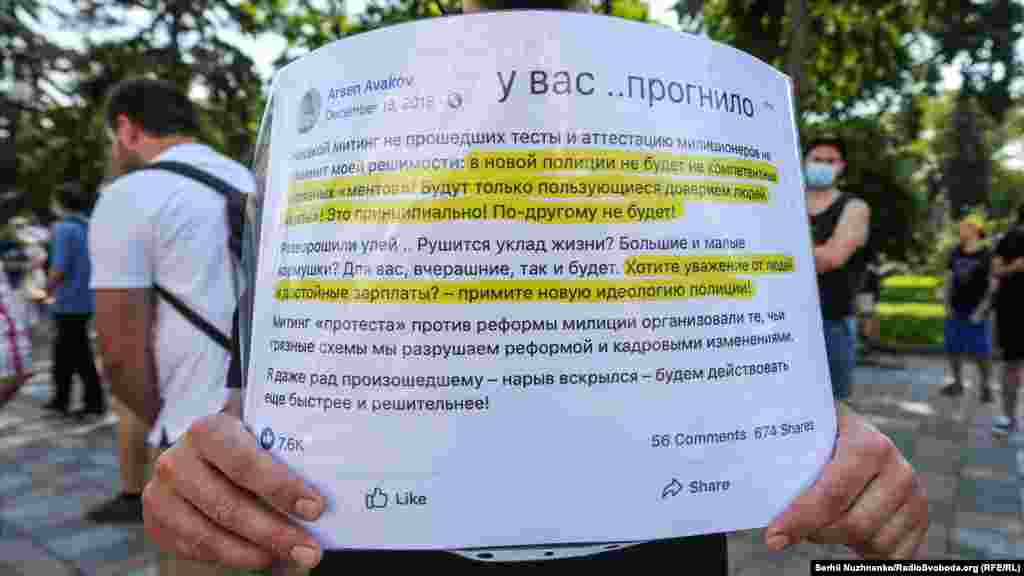 Arsen Avakov
у вас ..прогнило
December 18, 2015
митинг не прошедших тесты и аттестацию милиционеров не
моей решимости: в новой полиции не будет не компетентных
«ментов»! Будут только пользующиеся доверием людей
Это принципиально! По-другому не будет!
Разворошили улей .. Рушится уклад жизни? Большие и малые
кормушки? Для вас, вчерашние, так и будет. Хотите уважение от людей
и достойные зарплаты? – примите новую идеологию полиции!
Митинг «протеста» против реформы милиции организовали те, чьи
грязные схемы мы разрушаем реформой и кадровыми изменениями.
Я даже рад произошедшему – нарыв вскрылся – будем действовать
еще быстрее и решительнее!
7.6K
56 Comments 674 Shares
Like
Share
Serhii Nuzhnenko/RadioSvoboda.org (RFE/RL)